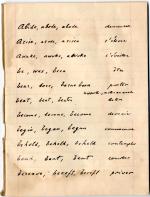 Abide, abode, abode demeurer
Arise, arose, arisen s'élever
Awake, awoke, awoke s'éveiller
be, was, been être
bear, bore, borne born porter
beat, beat, beaten battre
become, became, become devenir
begin, began, begun commencer
behold, beheld, beheld contempler
bend, bent, bent courber
bereave, bereft, bereft priver